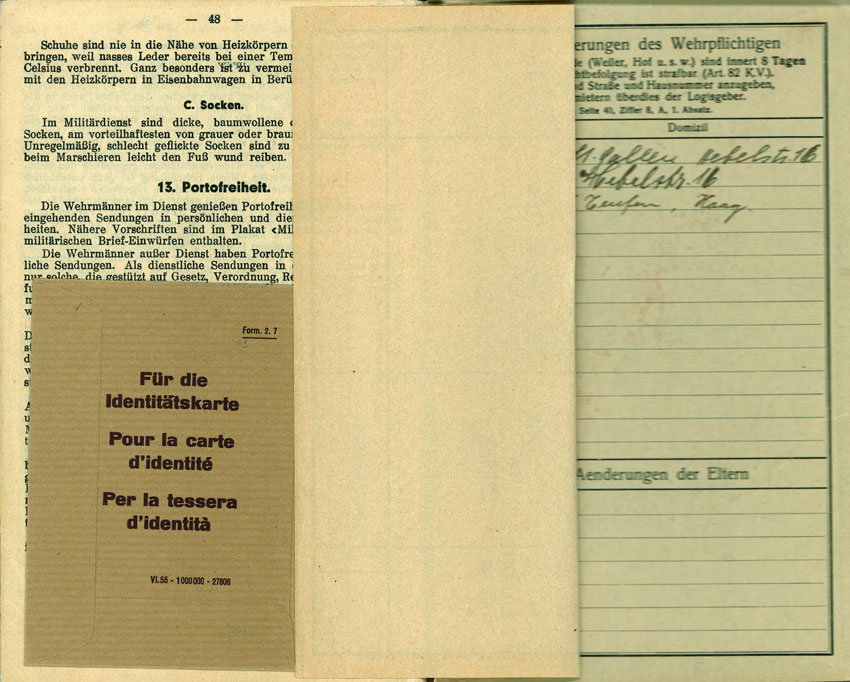 — 48 —
Schuhe sind nie in die Nähe von Heizkörpern
bringen, weil nasses Leder bereits bei einer Tem
Celsius verbrennt. Ganz besonders ist zu vermei
mit den Heizkörpern in Eisenbahnwagen in Berü
C. Socken.
Im Militärdienst sind dicke, baumwollene
Socken, am vorteilhaftesten von grauer oder brau
Unregelmäßig, schlecht geflickte Socken sind zu
beim Marschieren leicht den Fuß wund reiben.
13. Portofreiheit.
Die Wehrmänner im Dienst genießen Portofreih
eingehenden Sendungen in persönlichen und die
heiten. Nähere Vorschriften sind im Plakat «Mil
militärischen Brief-Einwürfen enthalten.
Die Wehrmänner außer Dienst haben Portofre
liche Sendungen. Als dienstliche Sendungen in
nur solche, die gestützt auf Gesetz, Verordnung, Re
Form. 2. 7
Für die
Identitätskarte
Pour la carte
d'identité
Per la tessera
d'identità
VI. 55 - 1 000 000 - 27806
erungen des Wehrpflichtigen
e (Weiler, Hof u. s. w.) sind innert 8 Tagen
htbefolgung ist strafbar (Art. 82 K.V.).
d Straße und Hausnummer anzugeben,
mietern überdies der Logisgeber.
Seite 40, Ziffer 8, A, 1. Absatz.
Domizil
St. Gallen Hebelstr. 16
Hebelstr. 16
Teufen, Haag
Aenderungen der Eltern